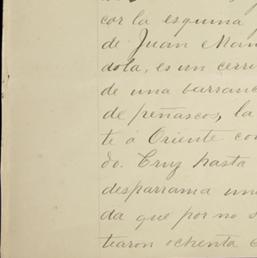 cor la esquina
de Juan Man
dola, es un cerri
de una barranc
de peñascos, la
te á Oriente con
do. Cruz hasta
desparrama un
da que por no s
tiaron ochenta c